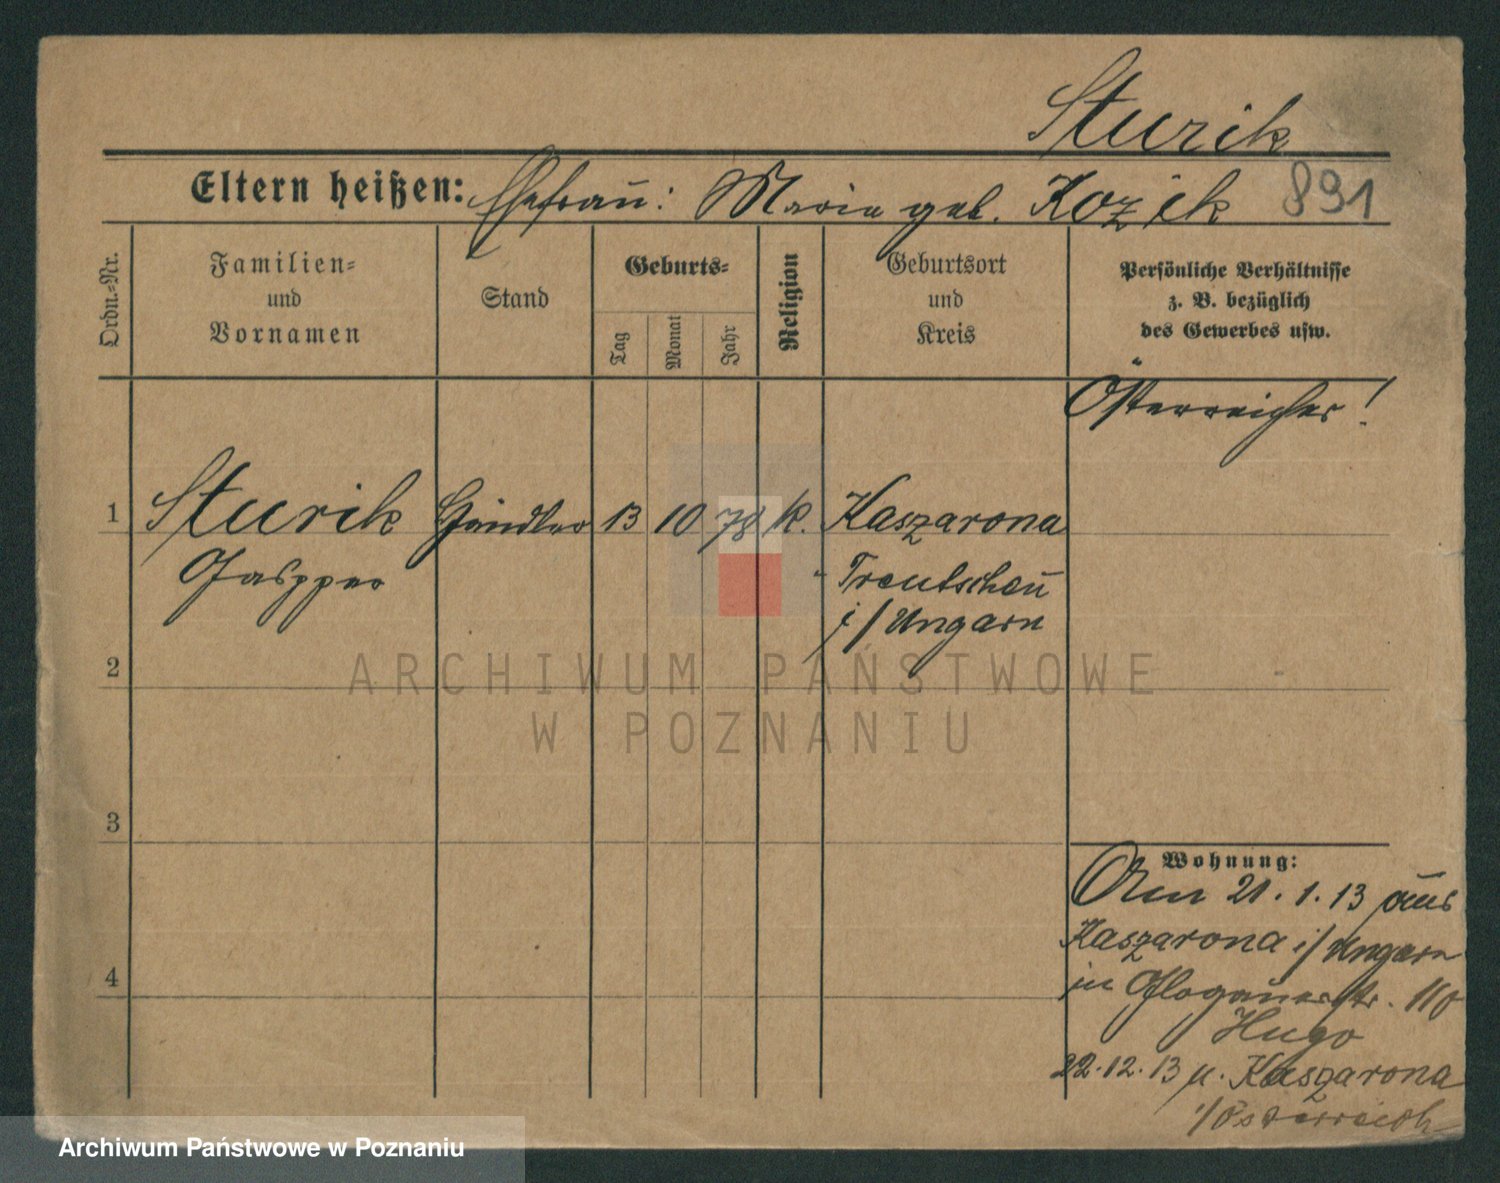 Sturik
Eltern heißen: Ehefrau: Maria geb. Kozik 891
Ordn.=Nr.
Familien=
und
Vornamen
Stand
Geburts=
Tag
Monat
Jahr
Religion
Geburtsort
und
Kreis
Persönliche Verhältnisse
z. B. bezüglich
des Gewerbes usw.
Österreicher!
1 Sturik Händler 13 10 78 k. Kaszarona
Gaspper Trentschen
i/Ungarn
2
3
4
Wohnung:
Am 21.1.13 aus
Kaszarona i/Ungarn
in Glogauerstr. 110
Hugo
22.12.13 n. Kaszarona
i/Österreich
ARCHIWUM PAŃSTWOWE
W POZNANIU
Archiwum Państwowe w Poznaniu